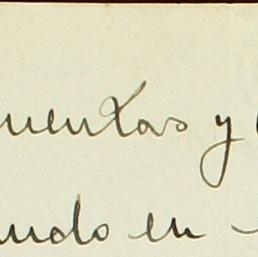 uentas y
ando en